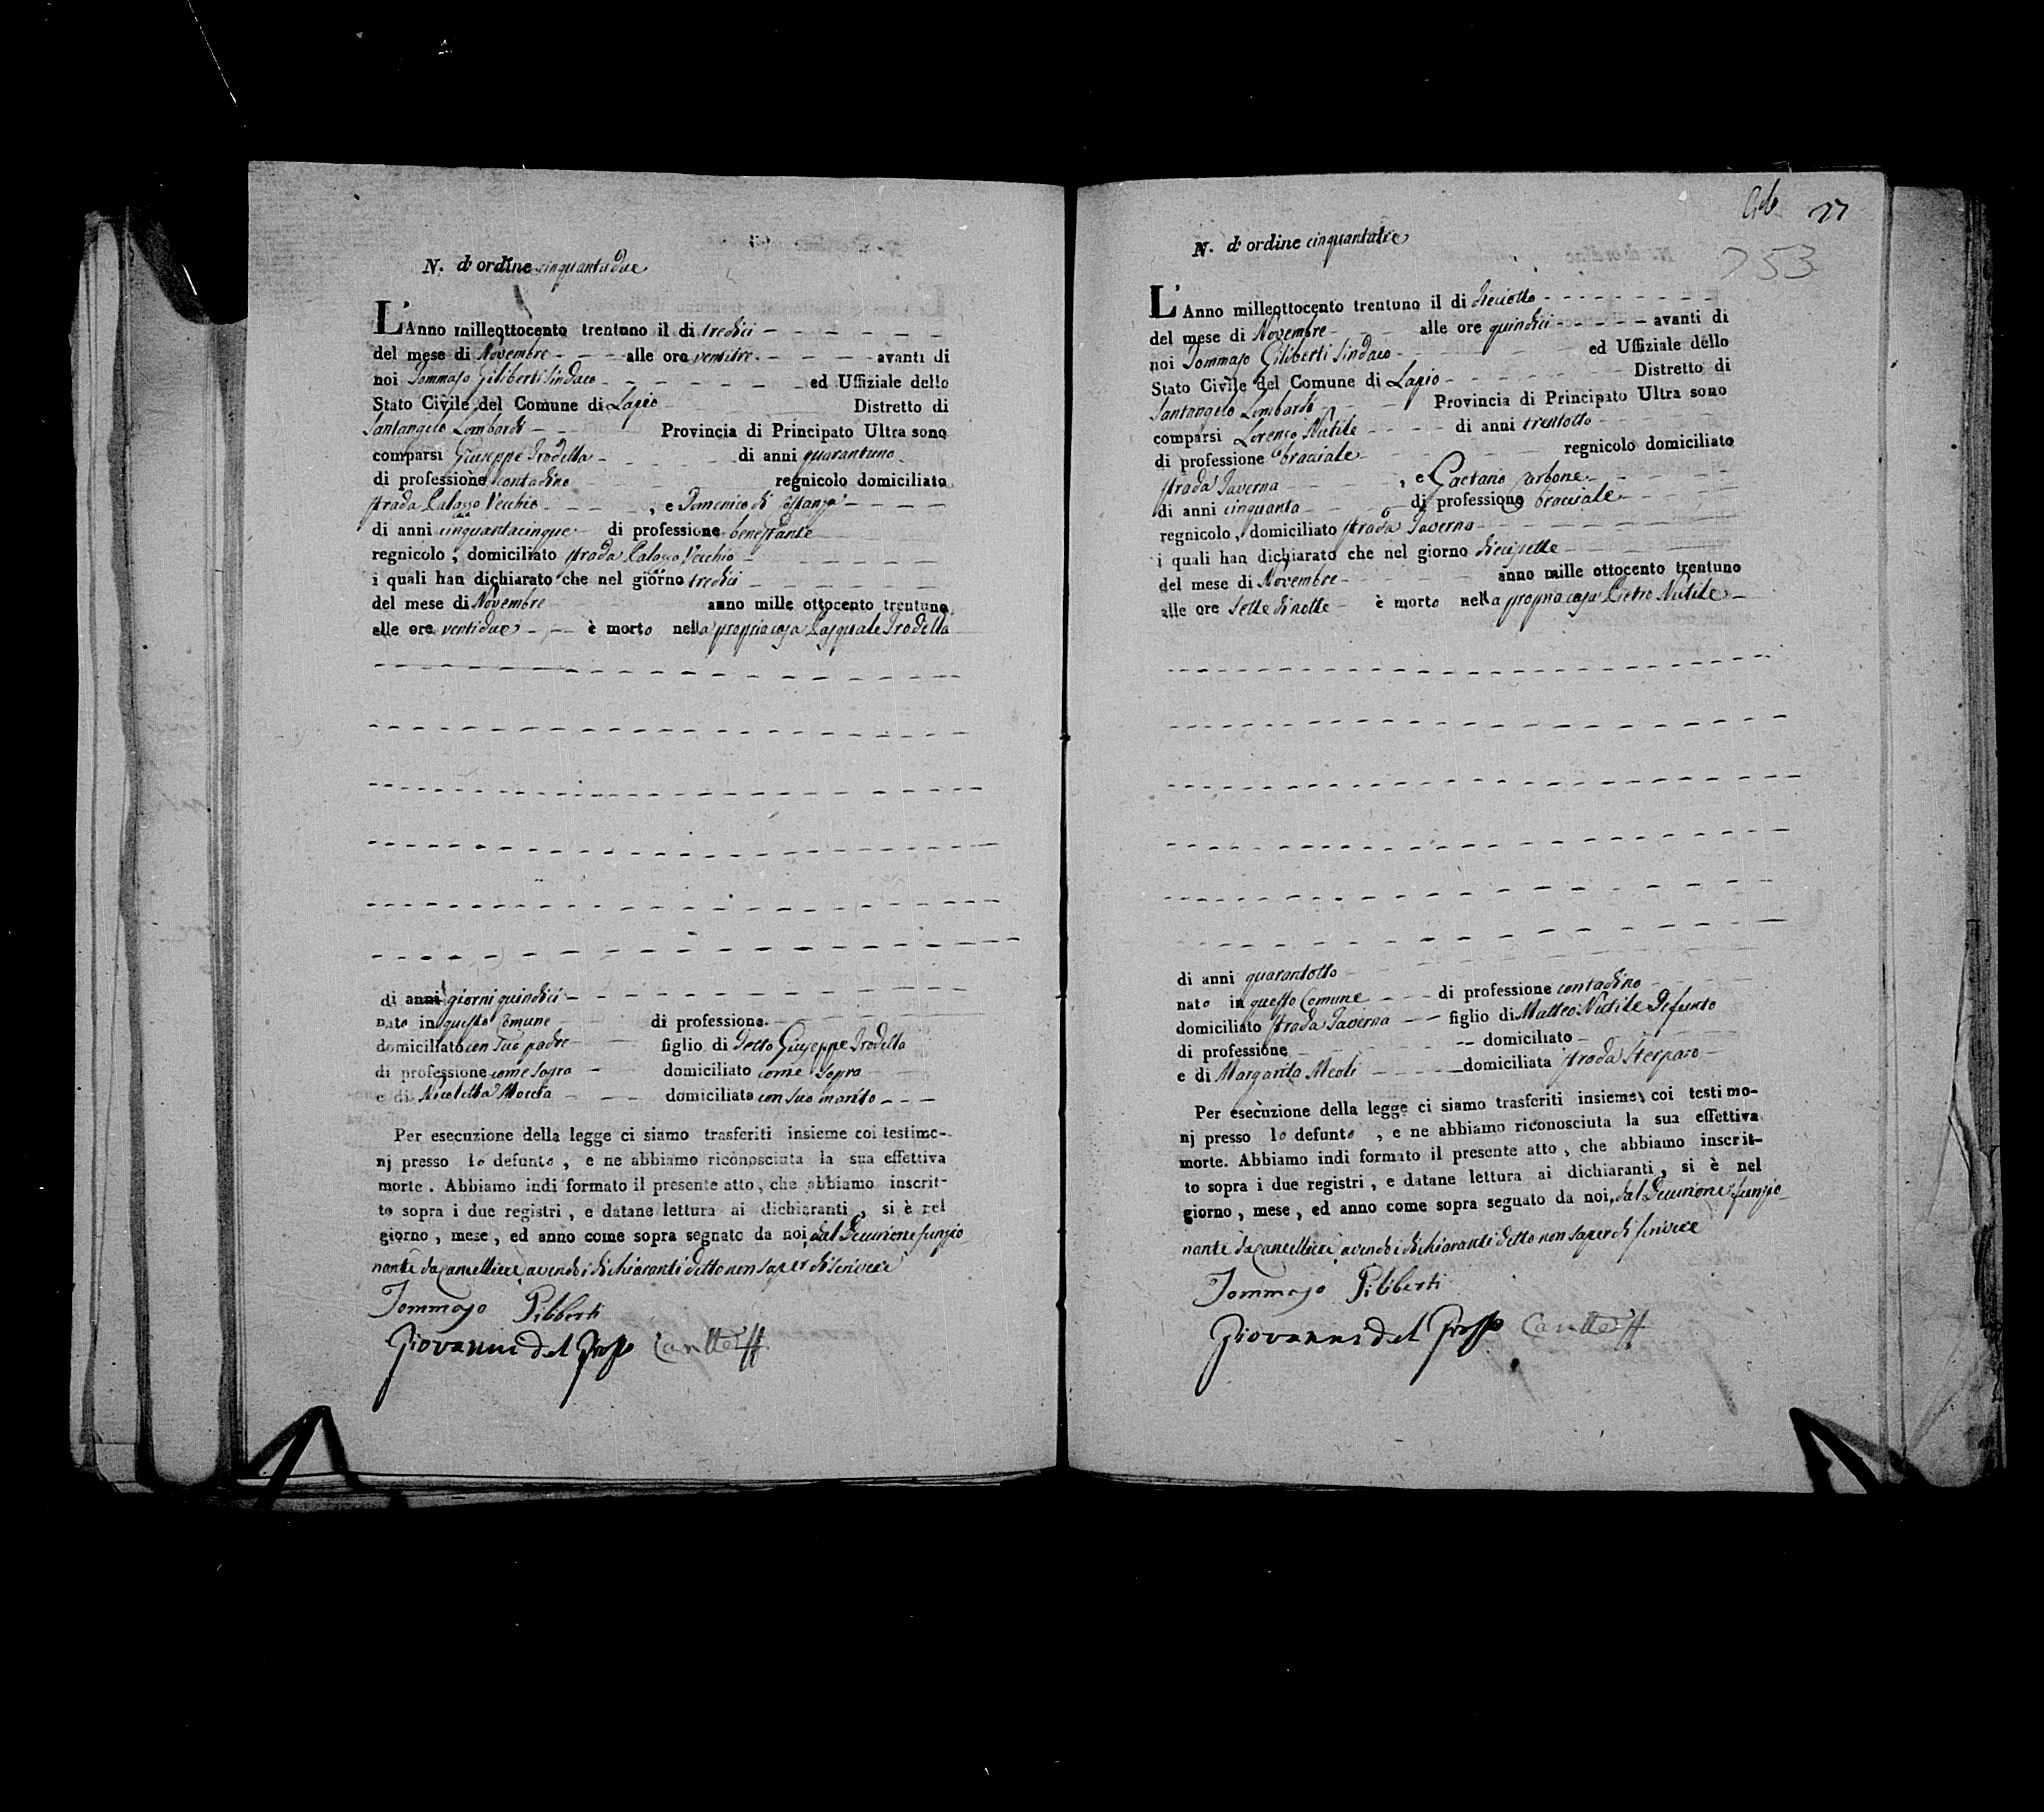 N. d'ordine cinquantadue
L'Anno milleottocento trentuno il di tredici
del mese di Novembre alle ore ventitre avanti di
noi Tommaso Giliberti Sindaco ed Uffiziale dello
Stato Civile del Comune di Lapio Distretto di
Santangelo Lombardi Provincia di Principato Ultra sono
comparsi Giuseppe Trodella di anni quarantuno
di professione contadino regnicolo domiciliato
strada Palazzo Vecchio , e Domenico di Costanza
di anni cinquantacinque di professione benestante
regnicolo, domiciliato strada Palazzo Vecchio
i quali han dichiarato che nel giorno tredici
del mese di Novembre anno mille ottocento trentuno
alle ore ventidue è morto nella propria casa Pasquale Trodella
di anni giorni quindici
nato in questo Comune di professione
domiciliato con suo padre figlio di detto Giuseppe Trodella
di professione come sopra domiciliato come sopra
e di Nicoletta domiciliata con suo marito
Per esecuzione della legge ci siamo trasferiti insieme coi testimo-
nj presso lo defunto , e ne abbiamo riconosciuta la sua effettiva
morte. Abbiamo indi formato il presente atto, che abbiamo inscrit-
to sopra i due registri, e datane lettura ai dichiaranti, si è nel
giorno, mese, ed anno come sopra segnato da noi, dal Decurione funzio
nante da Cancelliere avendo i dichiaranti detto non saper di scrivere
Tommaso Giliberti
Giovanni del Grosso
77
53
N. d'ordine cinquantatre
L'Anno milleottocento trentuno il di dieciotto
del mese di Novembre alle ore quindici avanti di
noi Tommaso Giliberti Sindaco ed Uffiziale dello
Stato Civile del Comune di Lapio Distretto di
Santangelo Lombardi Provincia di Principato Ultra sono
comparsi Lorenzo Nutile di anni trentotto
di professione bracciale regnicolo domiciliato
strada Taverna , e Gaetano Carbone
di anni cinquanta di professione bracciale
regnicolo, domiciliato strada Taverna
i quali han dichiarato che nel giorno diecisette
del mese di Novembre anno mille ottocento trentuno
alle ore sette di notte è morto nella propria casa Pietro Nutile
di anni quarantotto
nato in questo Comune di professione contadino
domiciliato strada Taverna figlio di Matteo Nutile defunto
di professione domiciliato
e di Margarita Meoli domiciliata strada Sterparo
Per esecuzione della legge ci siamo trasferiti insieme coi testimo-
nj presso lo defunto , e ne abbiamo riconosciuta la sua effettiva
morte. Abbiamo indi formato il presente atto, che abbiamo inscrit-
to sopra i due registri, e datane lettura ai dichiaranti, si è nel
giorno, mese, ed anno come sopra segnato da noi, dal Decurione funzio
nante da Cancelliere avendo i dichiaranti detto non saper di scrivere
Tommaso Giliberti
Giovanni del Grosso